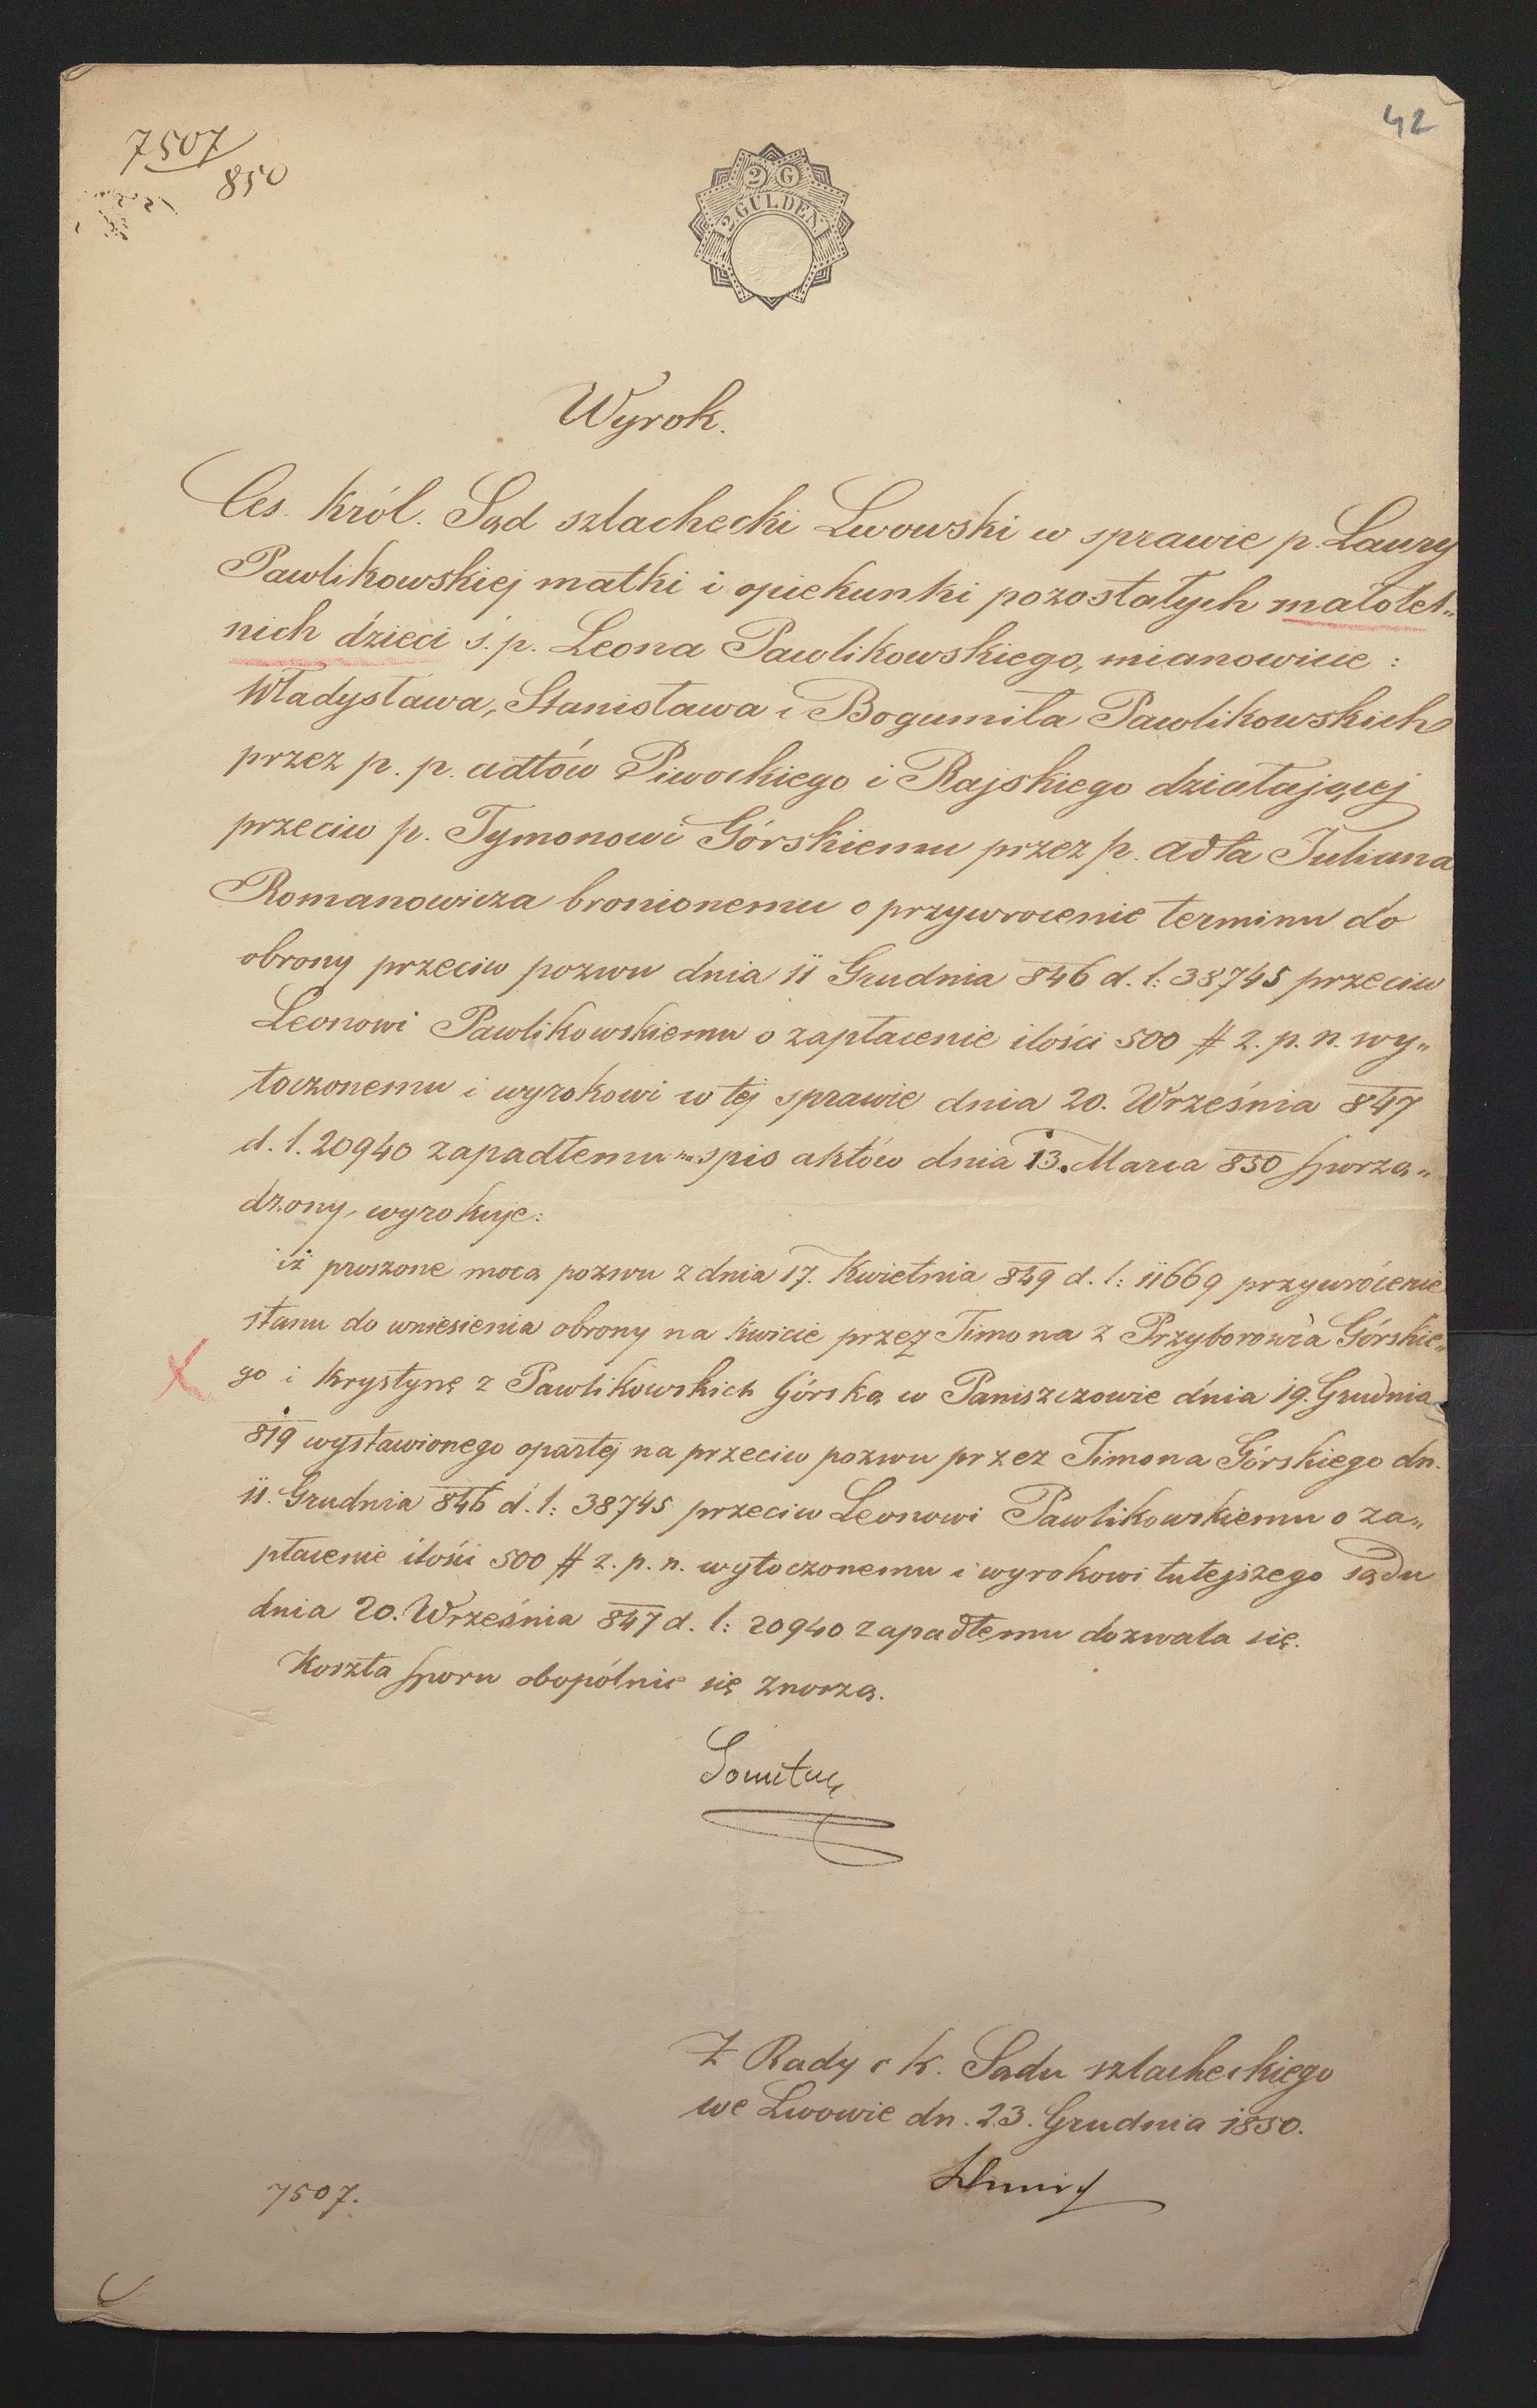 42
7507
850
2 G
2 GULDEN
Wyrok.
Ces. Król. Sąd szlachecki Lwowski w sprawie p. Laury
Pawlikowskiej matki i opiekunki pozostałych małolet„
nich dzieci ś. p. Leona Pawlikowskiego, mianowicie:
Władysława, Stanisława i Bogumiła Pawlikowskich
przez p. p. adtów Piwockiego i Rajskiego działającej
przeciw p. Tymonowi Górskiemu przez p. adta Juliana
Romanowicza bronionemu o przywrocenie terminu do
obrony przeciw pozwu dnia 11 Grudnia 846 d. l: 38745 przeciw
Leonowi Pawlikowskiemu o zapłacenie ilości 500 # z. p. n. wy„
toczonemu i wyrokowi w tej sprawie dnia 20. Września 847
d. l. 20940 zapadłemu na spis aktów dnia 13. Marca 850 sporzą„
dzony, wyrokuje:
iż proszone mocą pozwu z dnia 17. Kwietnia 849 d. l: 11669 przywrócenie
stanu do wniesienia obrony na kwicie przez Timona z Przyborowia Górskie„
go i Krystynę z Pawlikowskich Górską w Paniszczowie dnia 19. Grudnia
819 wystawionego opartej na przeciw pozwu przez Timona Górskiego dn.
11. Grudnia 846 d. l: 38745 przeciw Leonowi Pawlikowskiemu o za„
płacenie ilości 500 # z. p. n. wytoczonemu i wyrokowi tutejszego sądu
dnia 20. Września 847 d. l: 20940 zapadłemu dozwala się.
Koszta sporu obopólnie się znoszą.
Z Rady c k. Sądu szlacheckiego
we Lwowie dn. 23. Grudnia 1850.
7507.